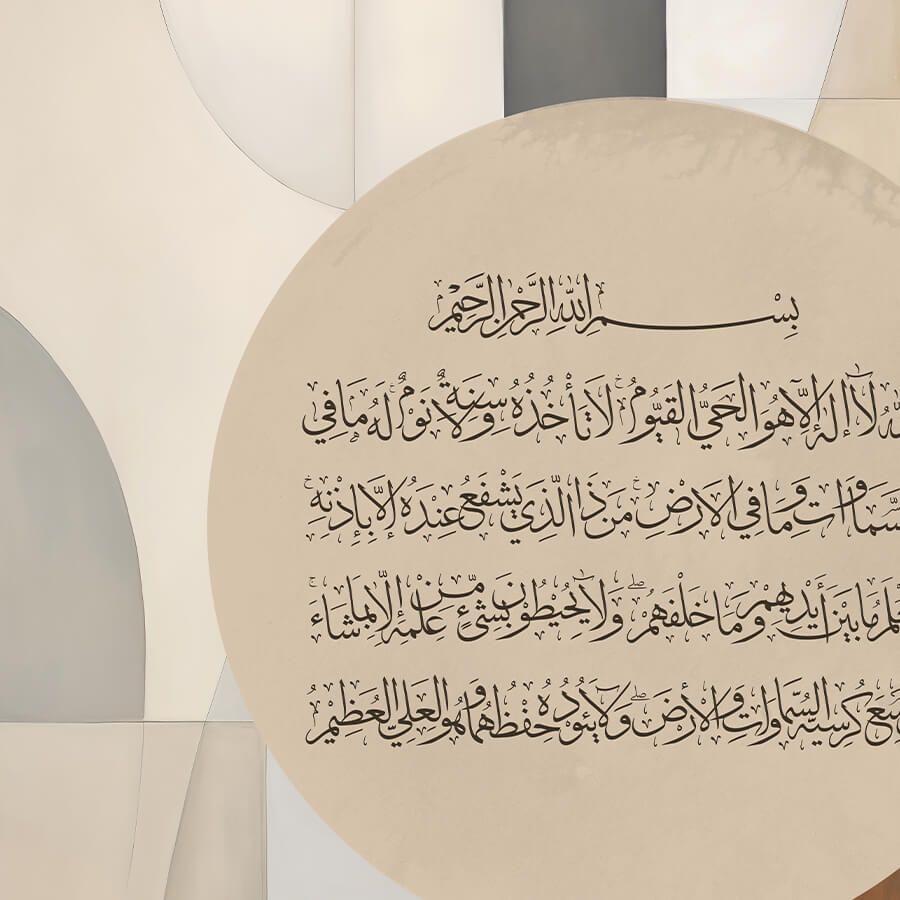 بِسْمِ اللّٰهِ الرَّحْمٰنِ الرَّحِيْمِ
لّٰهُ لَآ اِلٰهَ اِلَّا هُوَ الْحَيُّ الْقَيُّوْمُ لَا تَأْخُذُهٗ سِنَةٌ وَّلَا نَوْمٌ لَهٗ مَا فِي
لسَّمَاوَاتِ وَمَا فِي الْاَرْضِ مَنْ ذَا الَّذِيْ يَشْفَعُ عِنْدَهٗ اِلَّا بِاِذْنِهٖ
عْلَمُ مَا بَيْنَ اَيْدِيْهِمْ وَمَا خَلْفَهُمْ وَلَا يُحِيْطُوْنَ بِشَيْءٍ مِّنْ عِلْمِهٖ اِلَّا بِمَا شَاءَ
سِعَ كُرْسِيُّهُ السَّمَاوَاتِ وَالْاَرْضَ وَلَا يَئُوْدُهٗ حِفْظُهُمَا وَهُوَ الْعَلِيُّ الْعَظِيْمُ